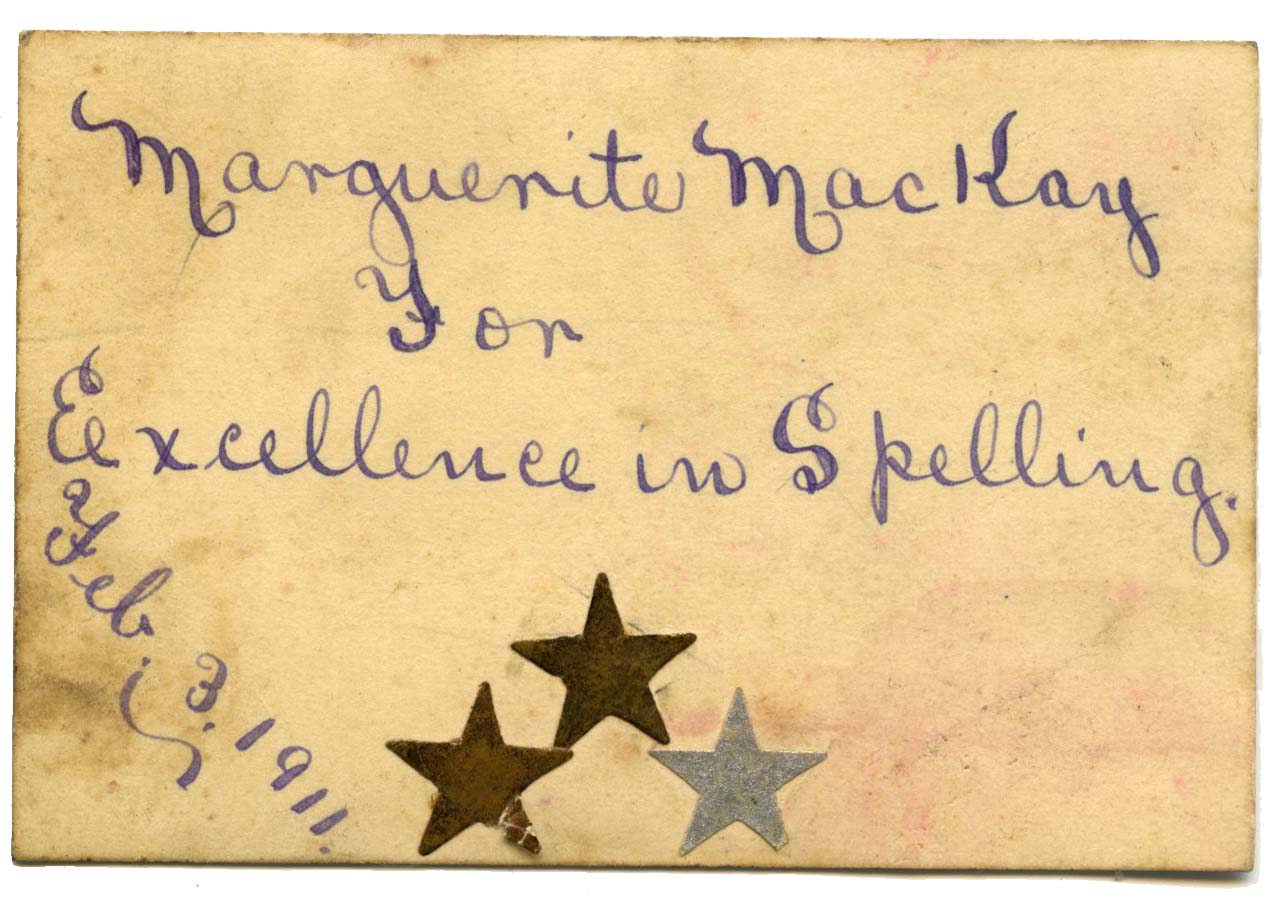 Marguerite MacKay
For
Excellence in Spelling.
Feb. 3, 1911.